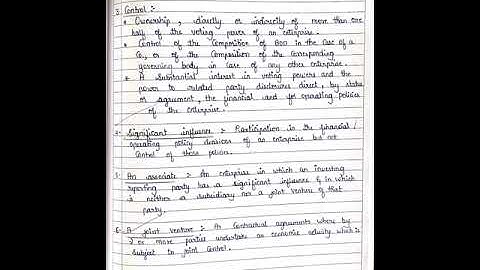 3. Control :-
• Ownership, directly or indirectly of more than one
half of the voting power of an enterprise.
• Control of the Composition of BOD in the Case of a
Co, or of the Composition of the Corresponding
governing body in case of any other enterprise.
• A substantial interest in voting powers and the
power to direct, by statue
or agreement, the financial and/or operating policies
of the enterprise.
4- Significant influence :- Participation in the financial/
operating policy of an enterprise but not
Control of those policies.
5- An associate :- An enterprise in which an investing
reporting party has a significant influence & in which
is neither a subsidiary nor a joint venture of that
party.
6- A joint venture :- A Contractual agreements where by
2 or more parties undertake an economic activity which is
Subject to joint Control.